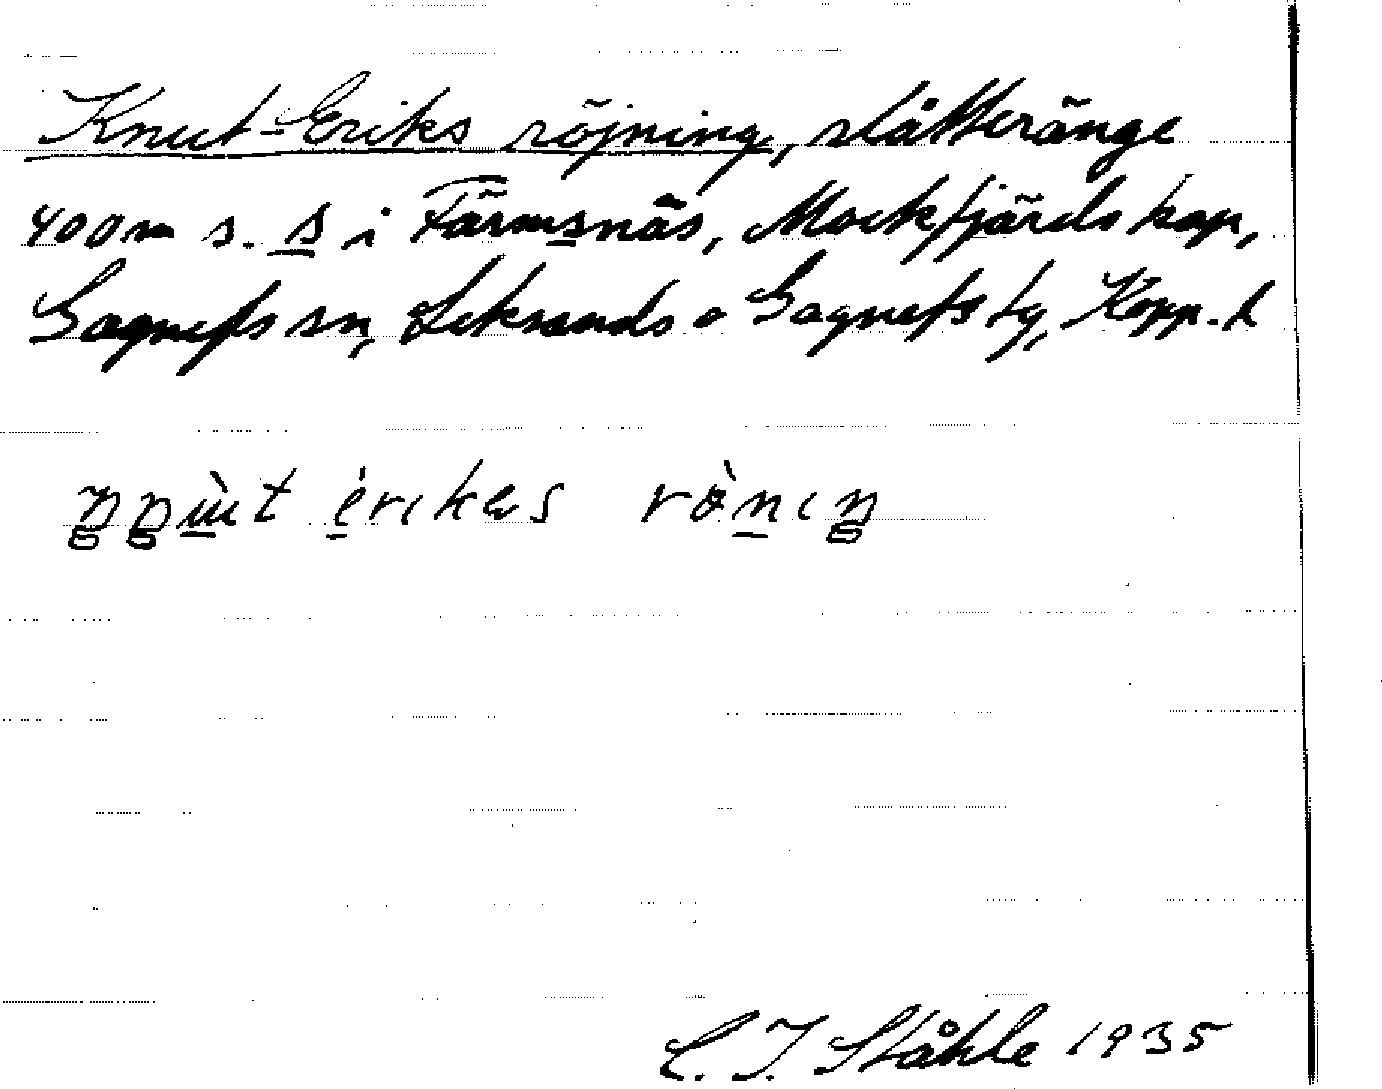 Knut-Eriks röjning, slåtteränge
400 m s. s i Färmsnäs, Mockfjärds kap,
Gagnefs sn, Leksands o Gagnefs tg, Kopp. l
érikes rö̀nıŋ
C. I. Ståhle 1935